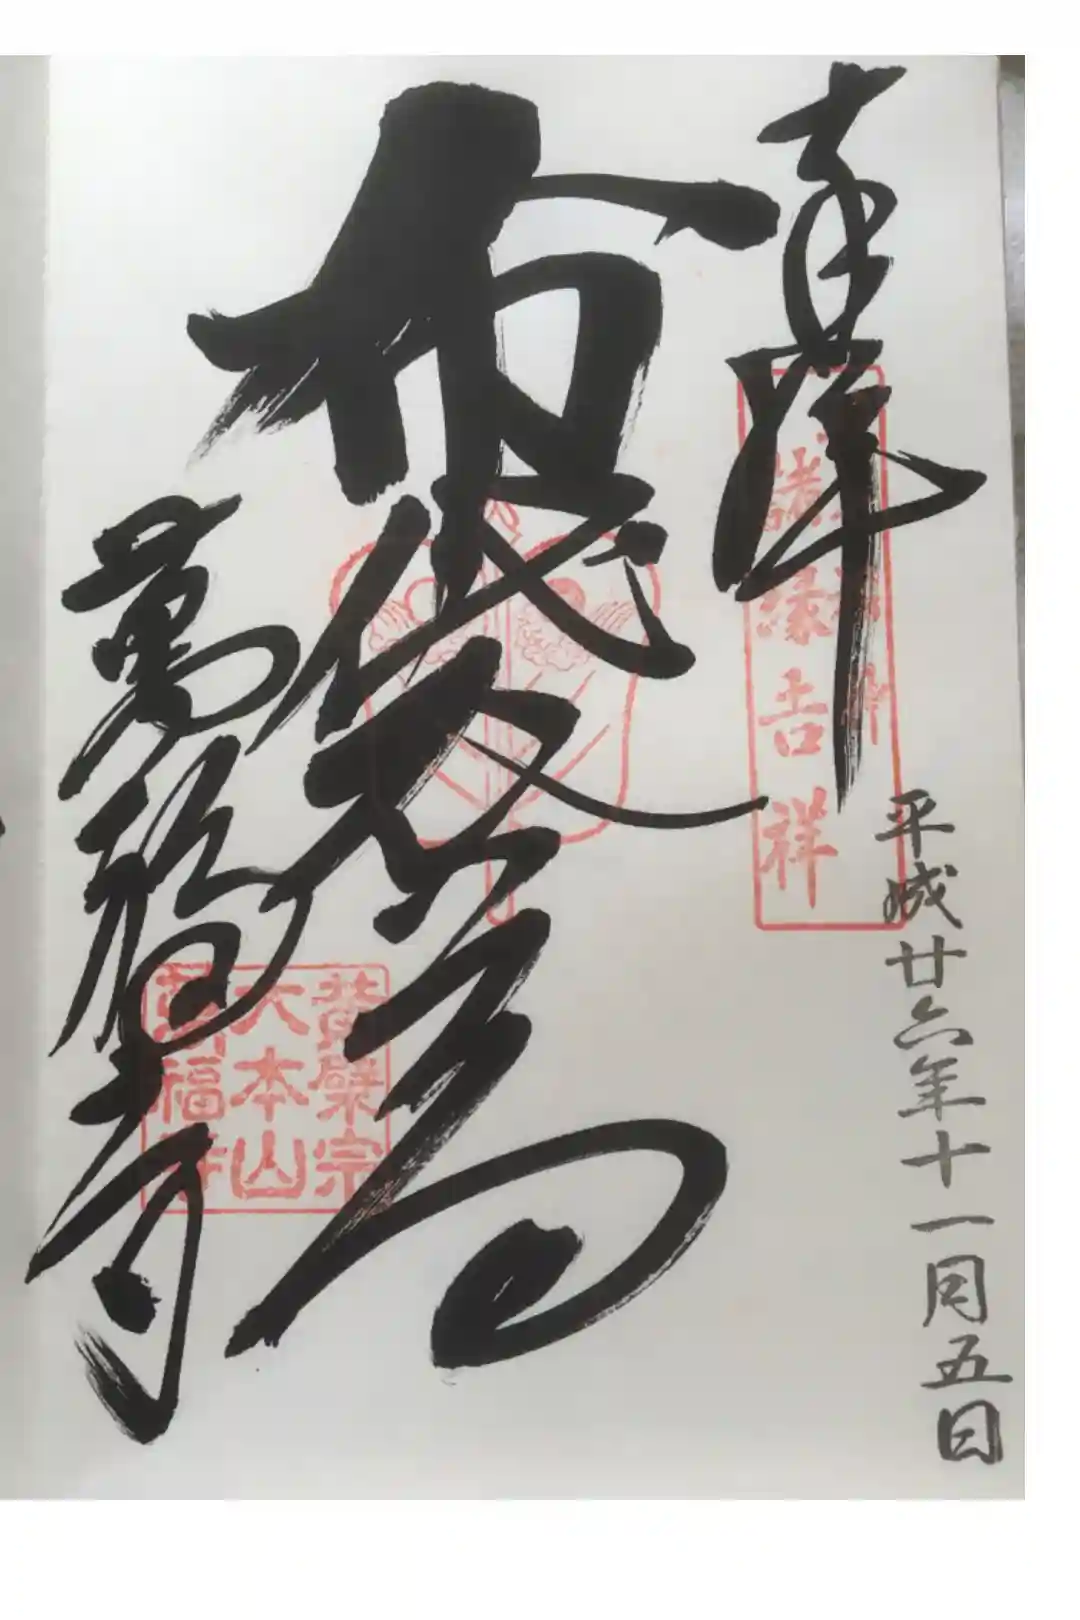 奉拝
諸縁吉祥
平成廿六年十一月五日
布袋尊
黄檗宗
大本山
萬福寺
萬福寺